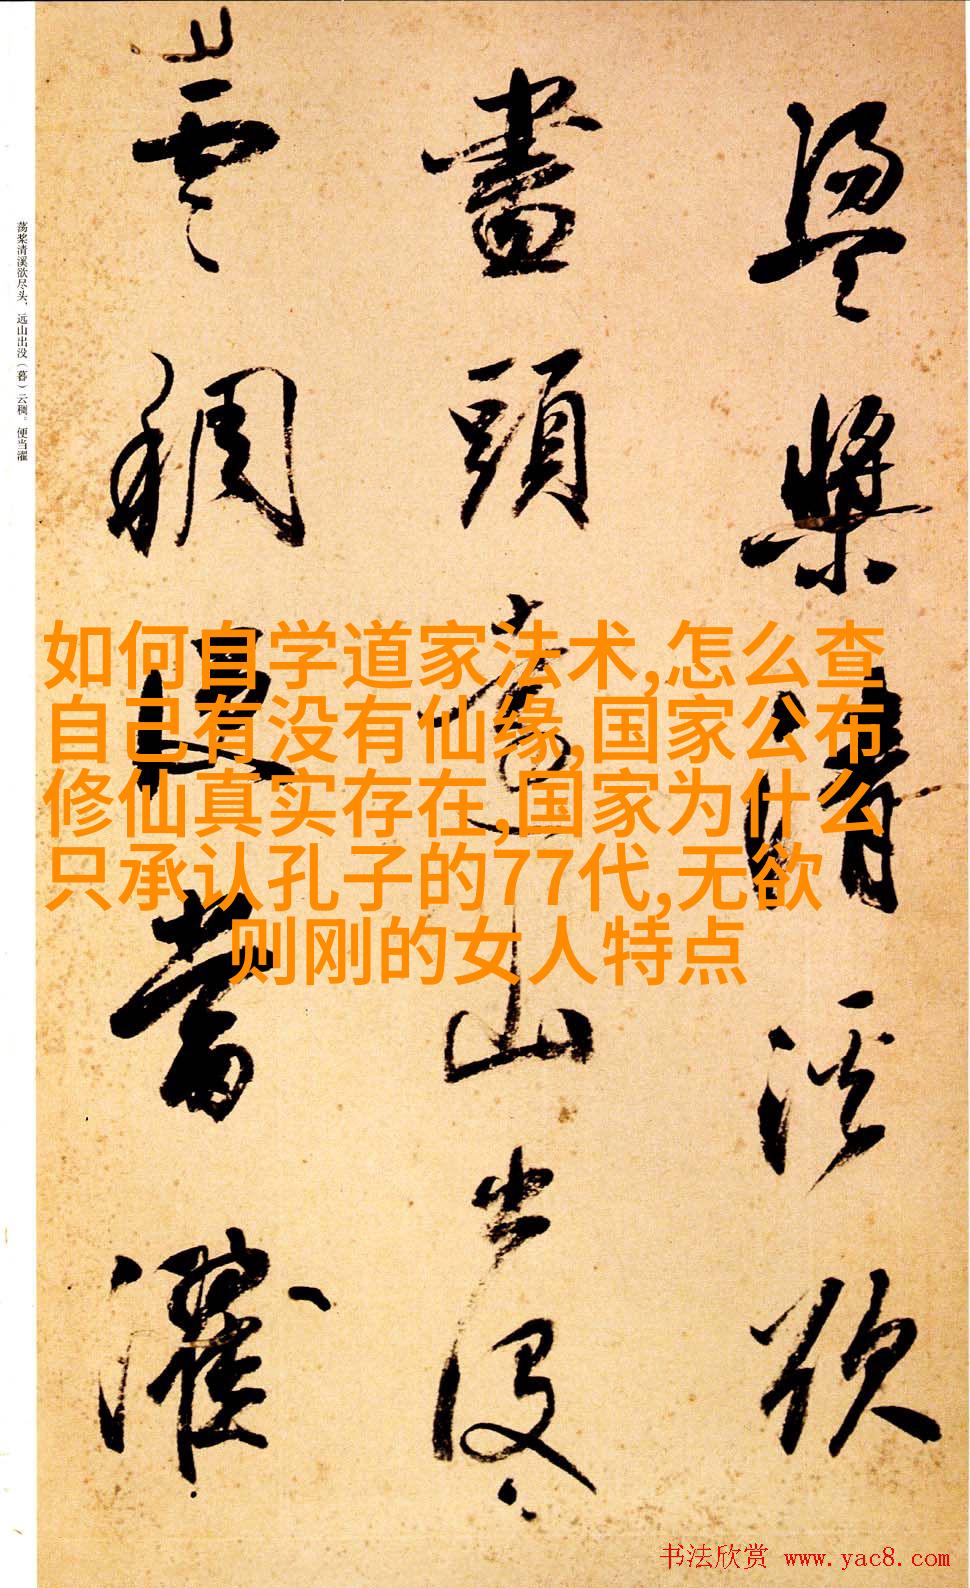 盪槳清溪欲
盡頭遠山出没
雲稠便當濯
荡桨清溪欲尽头，远山出没（暮）云稠。便当濯
如何自学道家法术,怎么查
自己有没有仙缘,国家公布
修仙真实存在,国家为什么
只承认孔子的77代,无欲
则刚的女人特点
书法欣赏 www.yac8.com